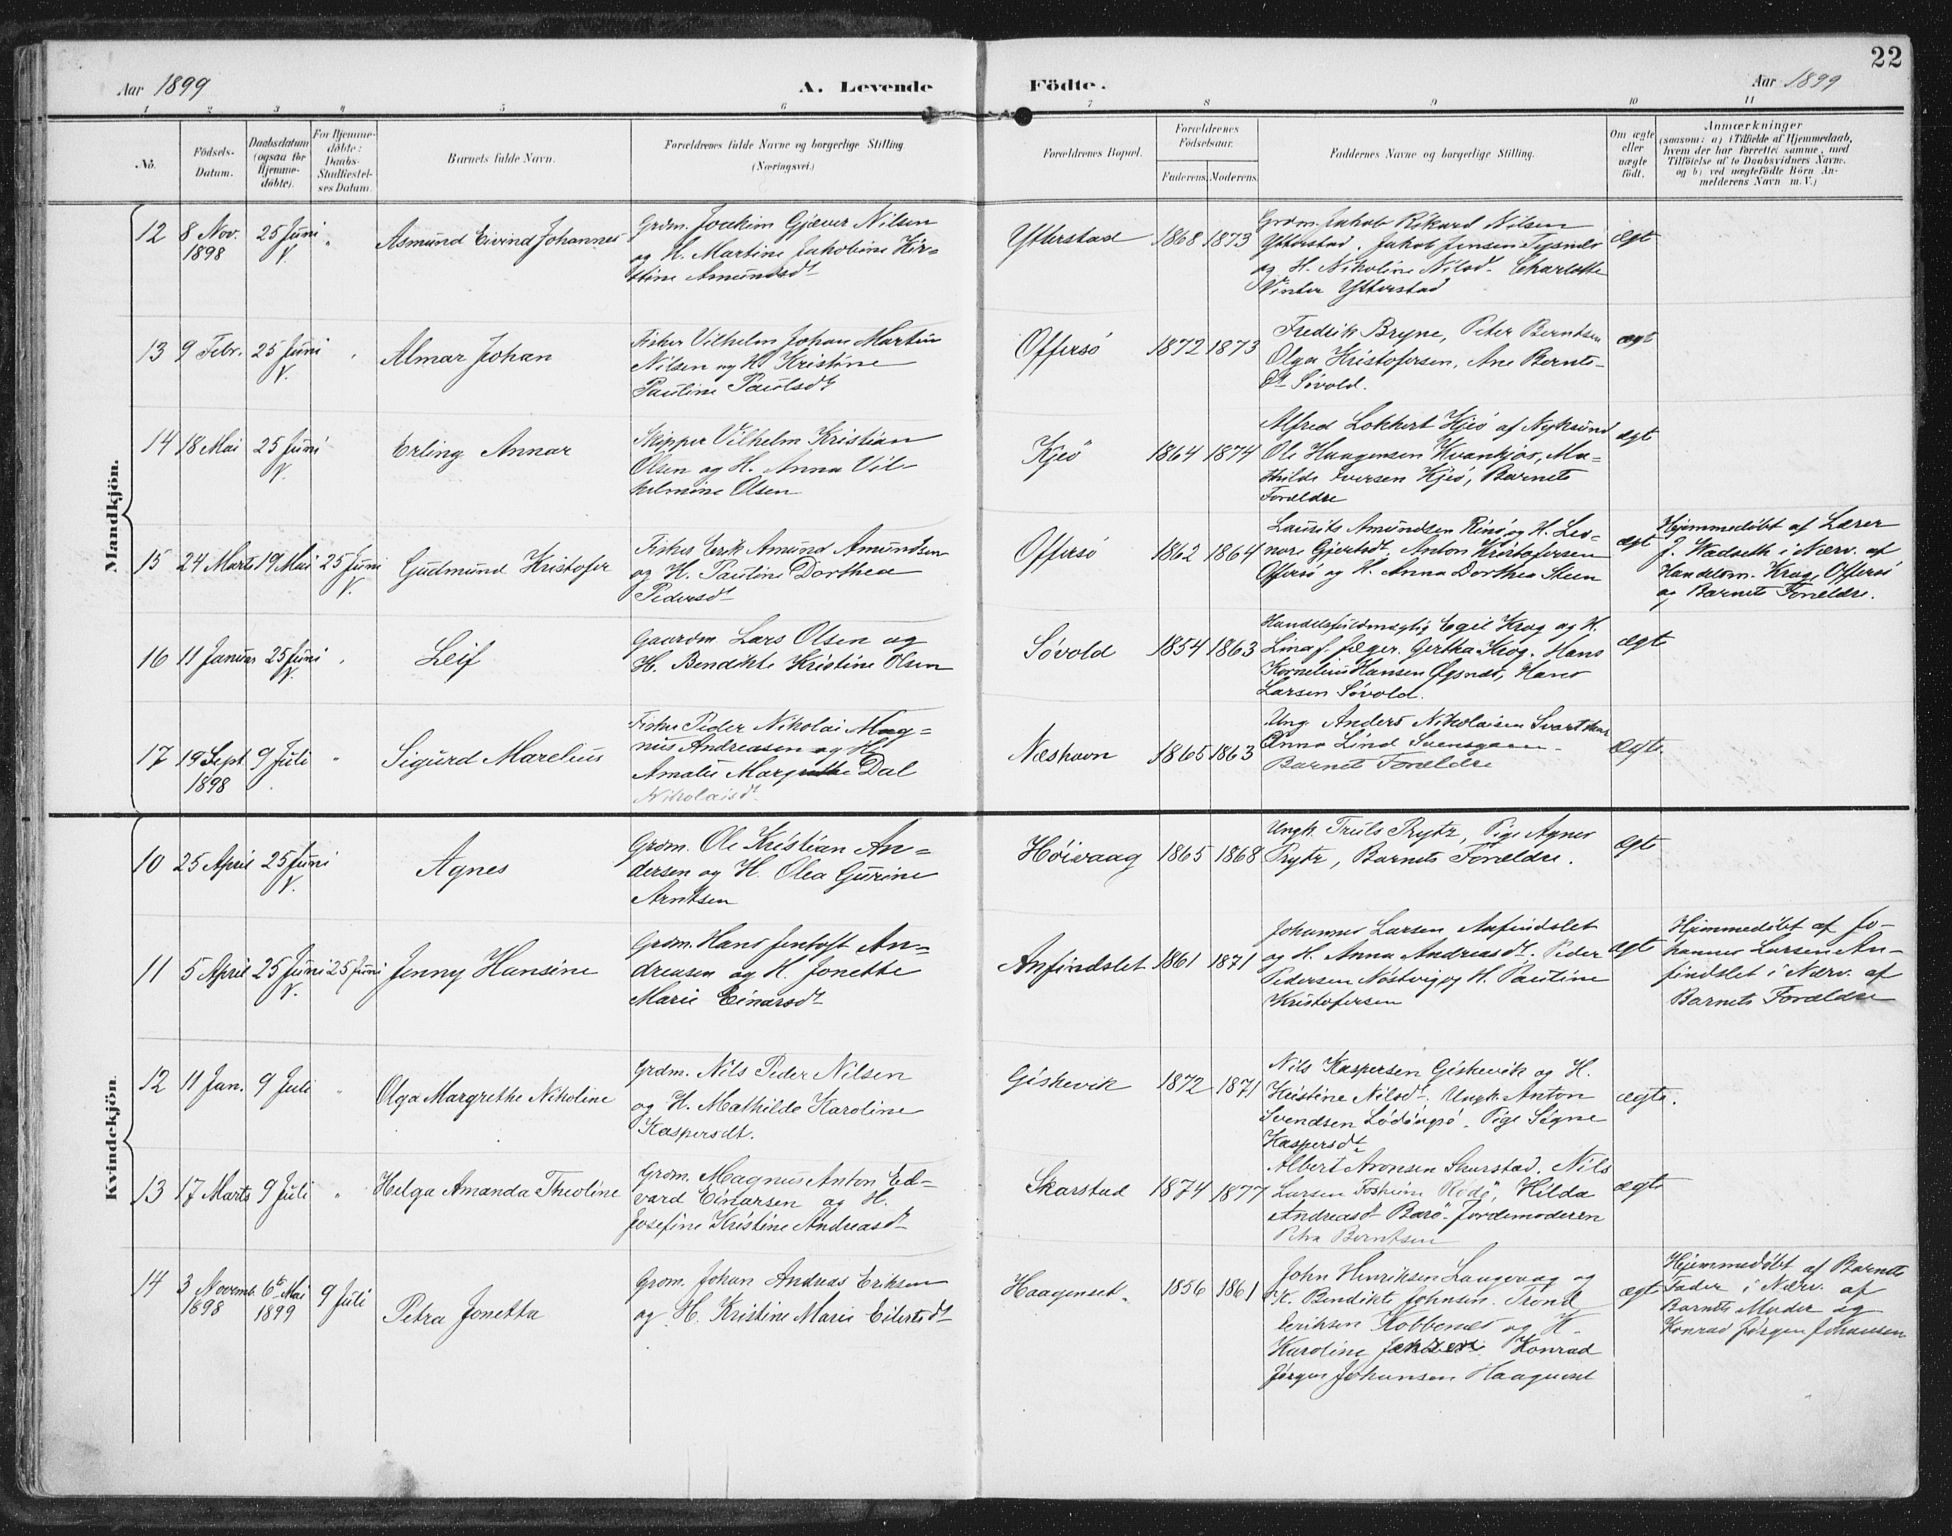 22
Aar 1899 A. Levende Födte. Aar 1899
1 2 3 4 5 6 7 8 9 10 11
No.
Födsels-
Datum.
Daabsdatum
(ogsaa for
Hjemme-
döbte).
For Hjemme-
döbte:
Daabs-
Stadfæstel-
ses Datum.
Barnets fulde Navn.
Forældrenes fulde Navne og borgerlige Stilling
(Næringsvei.)
Forældrenes Bopæl.
Forældrenes
Födselsaar.
Faderens. Moderens.
Faddernes Navne og borgerlige Stilling.
Om ægte
eller
uægte
födt.
Anmærkninger
(saasom: a) i Tilfælde af Hjemmedaab,
hvem der har forrettet samme, med
Tilföielse af to Daabsvidners Navne.
og b) ved uægtefödte Börn An-
melderens Navn m. V.)
Mandkjön.
12 8 Nov. 1898 25 Juni V. " Asmund Eivind Johannes
Grdm. Joakim Gjæver Nilsen
og H. Martine Jakobine Kir-
stine Amundsdt
Ytterstad 1868 1873
Grdm. Jakob Rikard Nilsen
Ytterstad. Jakob Jensen Tysnes
og H. Nikoline Nilsdt. Charlotte
Vinter Ytterstad
ægt
13 9 Febr. 25 Juni V. " Almar Johan
Fisker Vilhelm Johan Martin
Nilsen og H. Kristine
Pauline Paulsdt
Offersö 1872 1873
Fredrik Bryne, Peter Berntsen
Olga Kristofersen, Ane Bernts-
dt Sövold.
ægt
14 18 Mai 25 Juni V. Erling Annar
Skipper Vilhelm Kristian
Olsen og H. Anna Vil-
helmine Olsen
Kjeö 1864 1874
Alfred Lokkert Kjeö af Nyksund
Ole Haagensen Kvankjos, Ma-
thilde Iversen Kjeö, Barnets
Forældre
ægt
15 24 Marts 19 Mai 25 Juni V. Gudmund Kristofer
Fisker Erik Amund Amundsen
og H. Pauline Dorthea
Pedersdt
Offersö 1862 1864
Laurits Amundsen Rinö og H. Leo-
nore Gjertsdt. Anton Kristofersen
Offersö og H. Anna Dorthea Steen
ægt
Hjemmedöbt af Lærer
J. Wadseth i Nærv. af
Handelsm. Krog, Offersö
og Barnets Forældre.
16 11 Januar 25 Juni V. " Leif
Gaardm. Lars Olsen og
H. Bendikte Kristine Olsen
Sövold 1854 1863
Handelsfuldmægtig Egil Krog og H.
Lina f. Jæger. Gertha Krog. Hans
Kornelius Hansen Øgsnes, Hans
Larsen Sövold.
ægt
17 19 Sept. 1898 9 Juli " Sigurd Marelius
Fisker Peder Nikolai Mag-
nus Andreasen og H.
Amalie Margrethe Dal
Nikolaisdt.
Næshavn 1865 1863
Ung. Anders Nikolaisen
Anna Lind
Barnets Forældre
ægte
Kvindekjön.
10 25 April 25 Juni V. Agnes
Grdm. Ole Kristian An-
dersen og H. Olea Gurine
Arntsen
Höivaag 1865 1868
Ungk. Truls Prytz, Pige Agnes
Prytz, Barnets Forældre.
ægt
11 5 April 25 Juni V. 25 Juni Jenny Hansine
Grdm. Hans Jentoft An-
dreasen og H. Jonette
Marie Einarsdt
Anfindslet 1861 1871
Johannes Larsen Anfindslet
og H. Anna Andreasdt. Peder
Pedersen Nöstvig og H. Pauline
Kristofersen
ægt
Hjemmedöbt af Jo-
hannes Larsen An-
findslet i Nærv. af
Barnets Forældre
12 11 Jan. 9 Juli " Olga Margrethe Nikoline
Grdm. Nils Peder Nilsen
og H. Mathilde Karoline
Kaspersdt.
Giskevik 1872 1871
Nils Kaspersen Giskevik og H.
Kristine Nilsdt. Ungk. Anton
Svendsen Lödingsö. Pige Signe
Kaspersdt
ægte.
13 17 Marts 9 Juli " Helga Amanda Theoline
Grdm. Magnus Anton Ed-
vard Einarsen og H.
Josefine Kristine Andreasdt
Skarstad 1874 1877
Albert Aronsen Skarstad. Nils
Larsen Rödö, Hilda
Andreasdt Barö. Jordemoderen
Petra Berntsen
ægt.
14 3 Novemb. 1898 6te Mai 1899 9 Juli Petra Jonetta
Grdm. Johan Andreas Eriksen
og H. Kristine Marie Eilertsdt
Haagenset. 1856 1861
John Henriksen Langvaag og
H. Bendikte Johnsen. Trond
Eeriksen Kobbenes og H.
Karoline Jentzen. Konrad
Jörgen Johansen Haagenset
ægt
Hjemmedöbt af Barnets
Fader i Nærv. af
Barnets Moder og
Konrad Jörgen Johansen